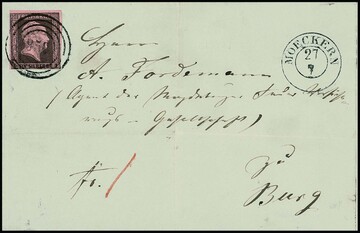 MOECKERN
27
7
Herrn
A. Fordemann
(Agent der Magdeburger Feuer Versiche
rungs-Gesellschaft)
fr.
zu
Burg